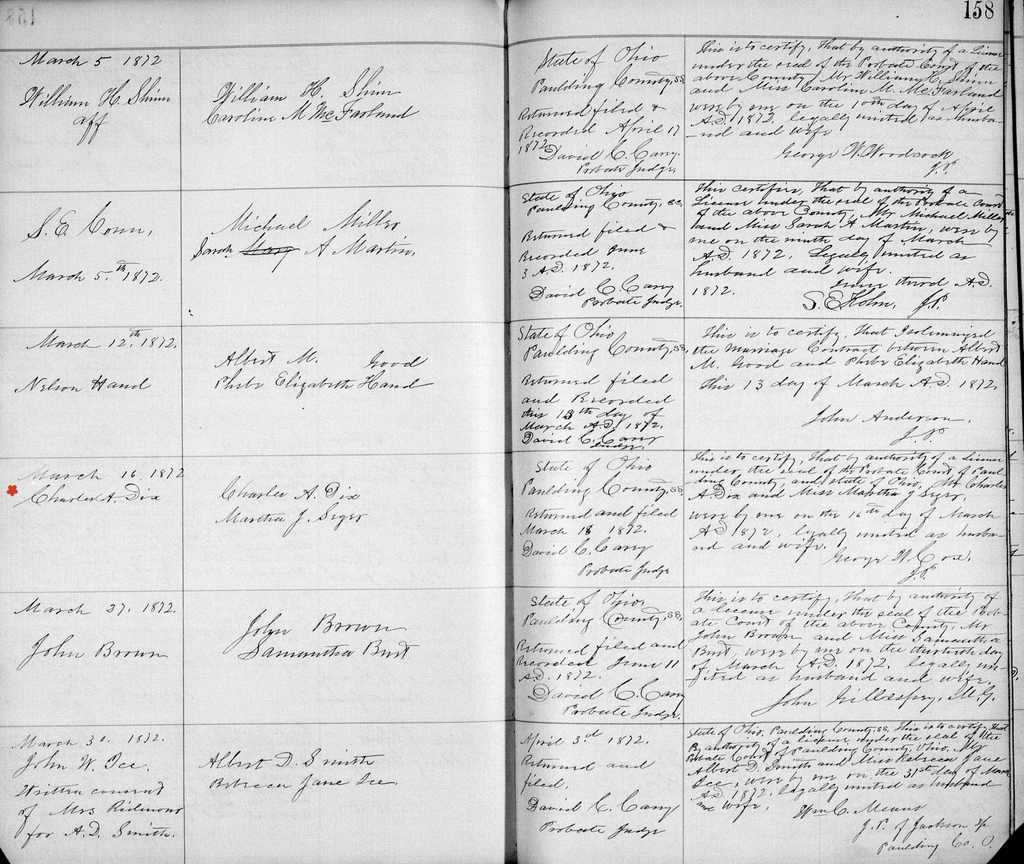 158
March 5 1872
William H. Shinn
aff
William H. Shinn
Caroline M McFarland
State of Ohio
Paulding County, SS
Returned filed &
Recorded April 17
1872
David C. Carry
Probate Judge
This is to certify, that by authority of a License
under the seal of the Probate Court of the
above County, Mr William H. Shinn
and Miss Caroline M. McFarland
were by me on the 10th day of April
A.D. 1872. legally united as husba-
nd and wife
George W. Woodcock
J.P.
S. E. Conn,
March 5.th 1872.
Michael Miller
Sarah Mary A Martin,
State of Ohio
Paulding County, SS
Returned filed &
Recorded June
3 A.D. 1872.
David C. Carry
Probate Judge.
This certifies, that by authority of a
License under the seal of the Probate Court
of the above County, Mr Michael Miller
and Miss Sarah A Martin, were by
me on the ninth day of March
A.D. 1872. Legally united as
husband and wife.
June third A.D.
1872.
S. E. Kohn, J.P.
March 12.th 1872,
Nelson Hand
Albert M. Good
Phebe Elizabeth Hand
State of Ohio
Paulding County, SS,
Returned filed
and Recorded
this 18th day of
March A.D. 1872.
David C. Carry
Judge.
This is to certify, that I solemnized
the Marriage Contract between Albert
M. Good and Phebe Elizabeth Hand
this 13 day of March A.D. 1872.
John Anderson,
J.P.
March 16. 1872
Charles A. Dix
Charles A. Dix
Martha J. Seger
State of Ohio
Paulding County, SS
Returned and filed
March 18 1872.
David C. Carry
Probate Judge
This is to certify, that by authority of a License
under, the seal of the Probate Court of Paul
ding County, and state of Ohio, Mr Charles
A. Dix and Miss Martha J Seger,
were by me on the 16th day of March
A.D 1872, legally united as husba-
nd and wife.
George W. Cox.
J.P.
March 27. 1872.
John Brown
John Brown
Samantha Burt
State of Ohio,
Paulding County, SS.
Returned filed and
Recorded June 11
A.D. 1872.
David C. Carry
Probate Judge.
This is to certify, that by authority of
a license under the seal of the Prob-
ate Court of the above County, Mr
John Brown and Miss Samantha
Burt, were by me on the thirtieth day
of March A.D. 1872. legally un-
ited as husband and wife,
John Gillespy, M.G.
March 30. 1872.
John W. Ice.
Written consent
of Mrs Ridmond
for A. D. Smith.
Albert D. Smith
Rebecca Jane Ice
April 3rd 1872.
Returned and
filed.
David C. Carry
Probate Judge
State of Ohio, Paulding County, SS, This is to certify, that
By authority of a license under the seal of the
Probate Court of Paulding County, Ohio, Mr
Albert D. Smith and Miss Rebecca Jane
Ice, were by me on the 31st day of March
A.D. 1872, legally united as husband
and wife,
Wm C. Means
J.P. of Jackson Tp
Paulding Co. O.